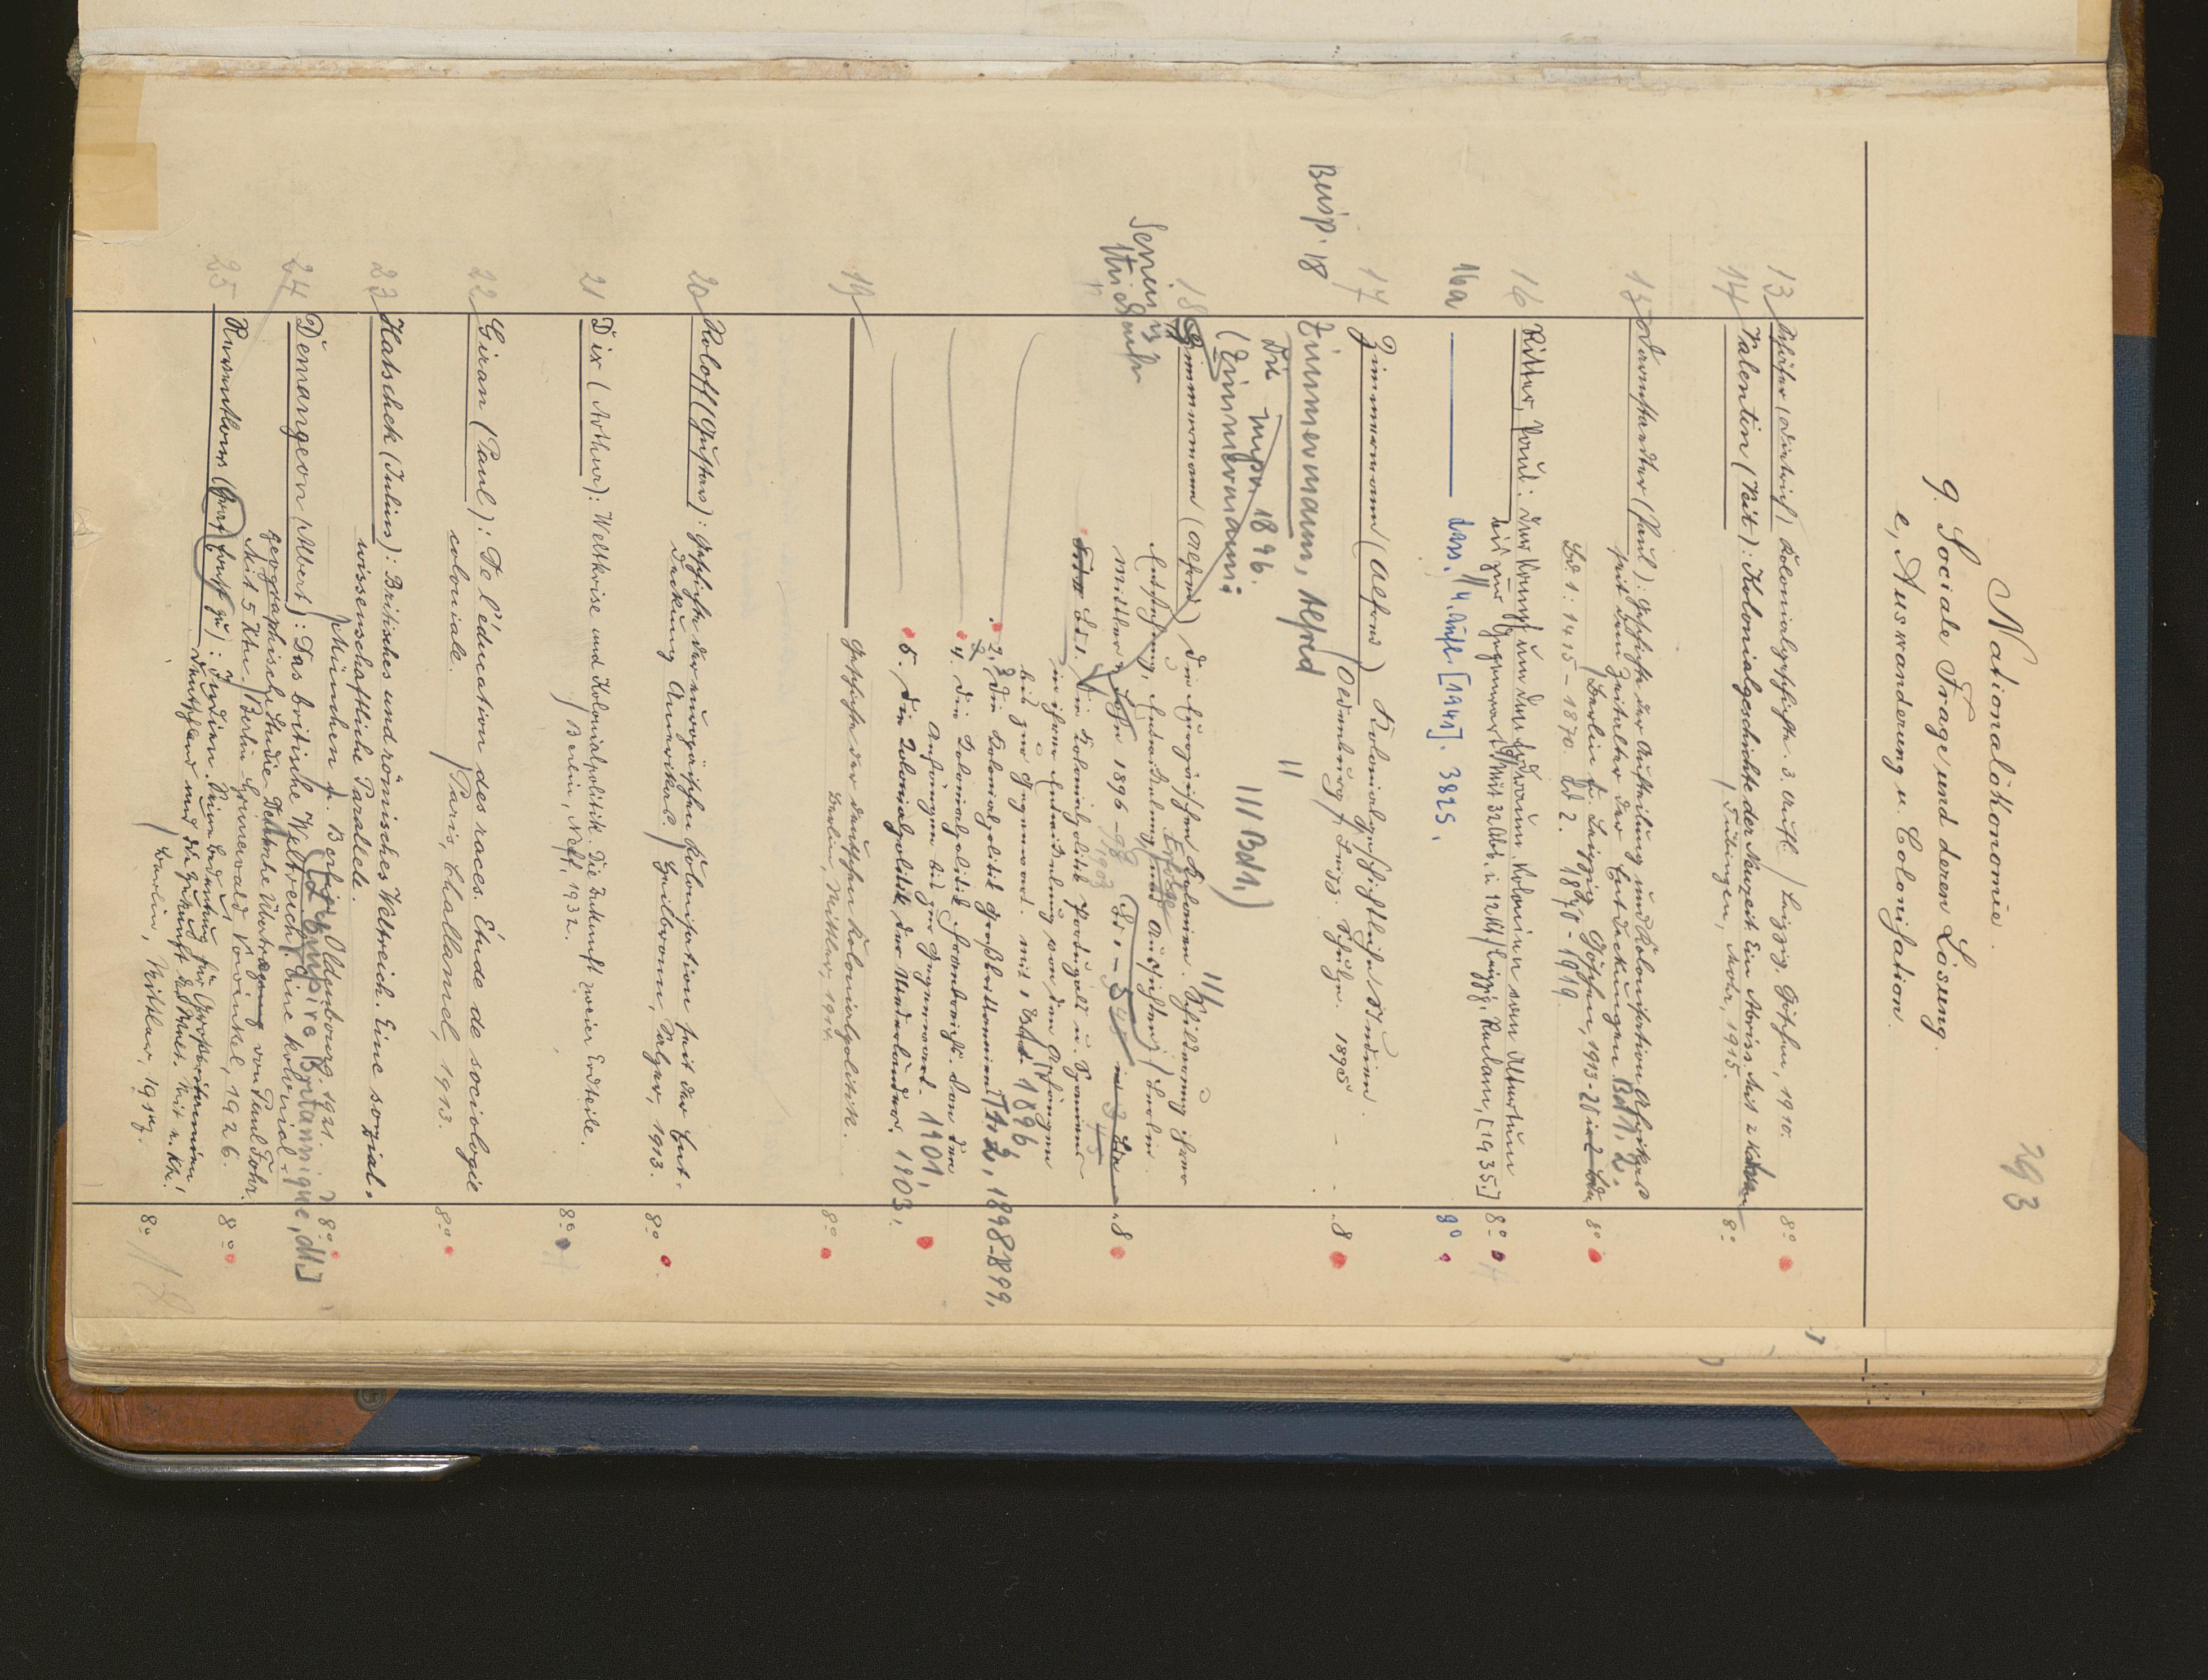 293
Nationalökonomie.
9. Sociale Frage und deren Lösung.
e, Auswanderung u. Colonisation.
13 Schäfer (Dietrich) Kolonialgeschichte. 3. Aufl. / Leipzig, Göschen, 1910. 8°
14 Valentin (Veit): Kolonialgeschichte der Neuzeit. Ein Abriss. Mit 2 Karten
/ Tübingen, Mohr, 1915. 8°
15 Darmstaedter (Paul): Geschichte der Aufteilung und Kolonisation Afrikas
seit dem Zeitalter der Entdeckungen Bd 1, 2.
/ Berlin u. Leipzig, Göschen, 1913-20 in 2 Bdn 8°
Bd 1: 1415-1870. Bd 2. 1870-1919
16 Ritter, Paul: Der Kampf um den Erdraum. Kolonien vom Altertum
bis zur Gegenwart. Mit 32 Abb. u. 12 Kt / Leipzig, Reclam, [1935.] 8°
16a ——— dass. 4. Aufl. [1941]. 382 S. 8°
17 Zimmermann (Alfred) Kolonialgeschichtliche Studien.
/ Oldenburg u. Leipz. Schulze. 1895 8
Beisp. 18 Zimmermann, Alfred
Die 1896.
(Zimmermann: III Bd 1,)
18 Zimmermann (Alfred) Die Europäischen Kolonien. Schilderung ihrer
Entstehung, Entwicklung, Erfolge und Aussichten / Berlin
Mittler u. Sohn 1896-1903 8
Bd 1. Die Kolonialpolitik Portugals u. Spaniens
in ihrer Entwickelung von den Anfängen
bis zur Gegenwart. Mit 1 Karte 1896,
2, 3. Die Kolonialpolitik Großbritanniens T1. 2, 1898-1899,
4. Die Kolonialpolitik Frankreichs. Von den
Anfängen bis zur Gegenwart. 1901,
5. Die Kolonialpolitik der Niederländer. 1903,
19 ——— Geschichte der deutschen Kolonialpolitik.
Berlin, Mittler, 1914. 8°
20 Roloff (Gustav): Geschichte der europäischen Kolonisation seit der Ent-
deckung Amerikas. / Heilbronn, Salzer, 1913. 8°
21 Dix (Arthur): Weltkrise und Kolonialpolitik. Die Zukunft zweier Erdteile.
/ Berlin, Neff, 1932. 8°
22 Giran (Paul): De l'éducation des races. Étude de sociologie
coloniale. / Paris, Challamel, 1913. 8°
23 Hatschek (Julius): Britisches und römisches Weltreich. Eine sozial-
wissenschaftliche Parallele.
/ München u. Berlin, Oldenbourg. 1921. 8°
24 Demangeon (Albert): Das britische Weltreich. Eine kolonial-
[L'Empire Britannique, dt.]
geographische Studie. Deutsche Übertragung von Paul Fohr.
Mit 5 Ktn. / Berlin-Grunewald, Vowinkel, 1926. 8°
25 Reventlow (Graf Ernst zu): Indien. Seine Bedeutung für Großbritannien,
Deutschland und die Zukunft der Welt. Mit 2 Kt.
/ Berlin, Mittler, 1917. 8°